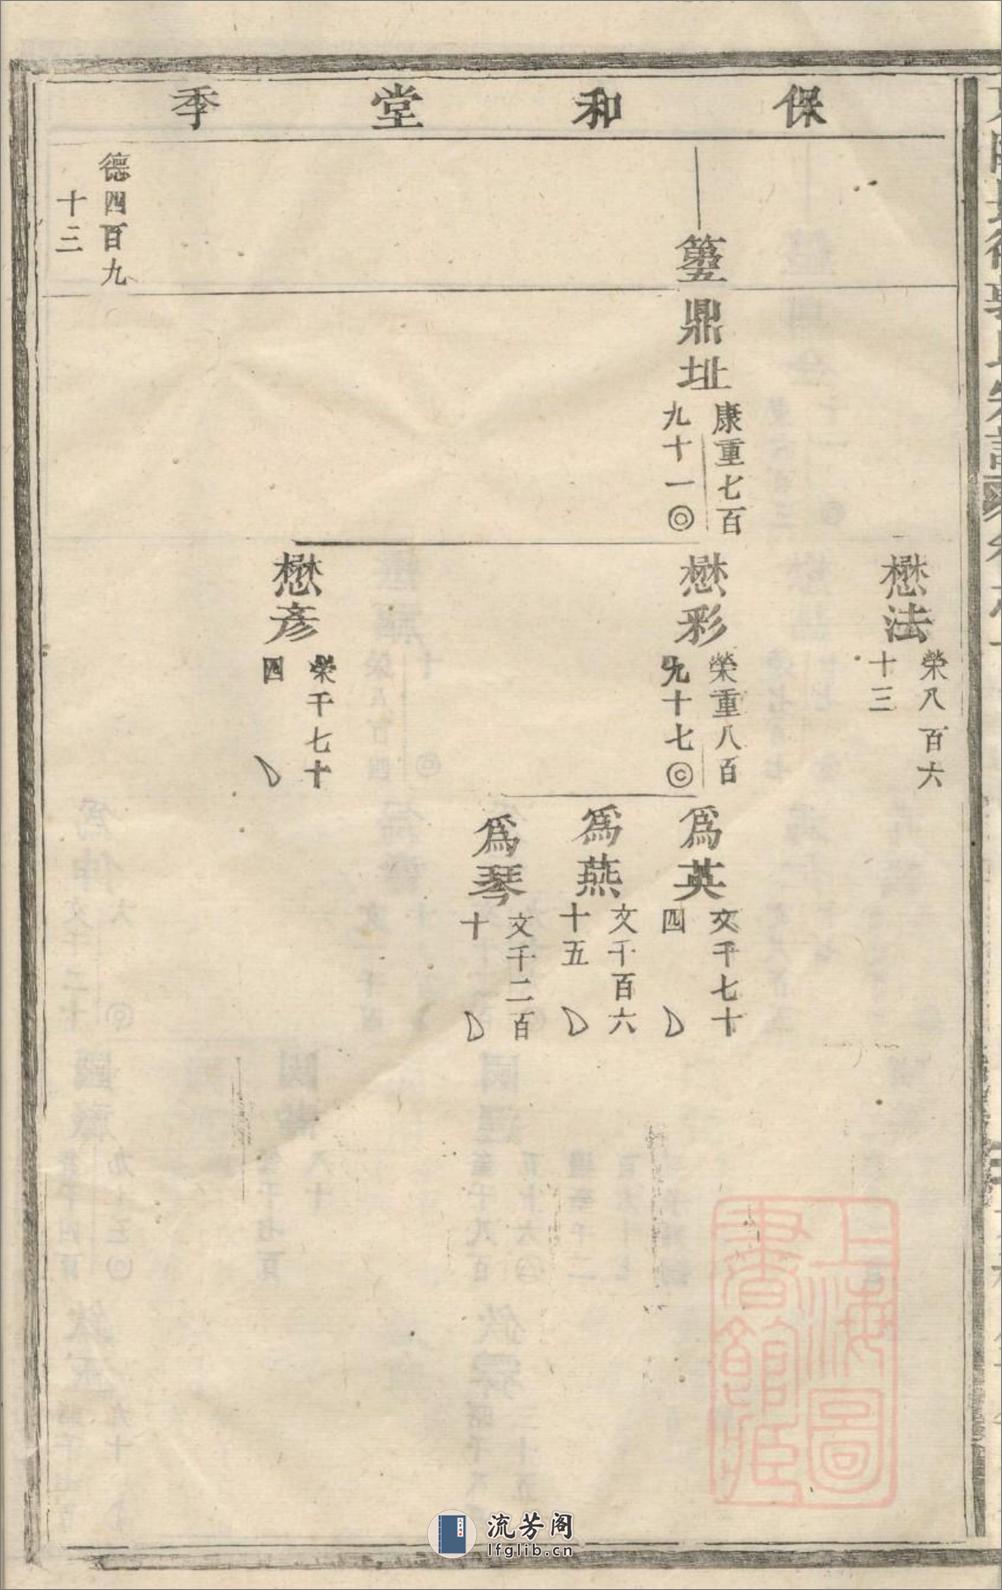 保和堂季
懋法
榮八百六
十三
簦
鼎址
康重七百
九十一
懋彩
榮重八百
九十七
爲英
文千七十
四
爲燕
文千百六
十五
爲琴
文千二百
十
懋彥
榮千七十
四
德四百九
十三
上海圖
書館藏
流芳阁
lfglib.cn